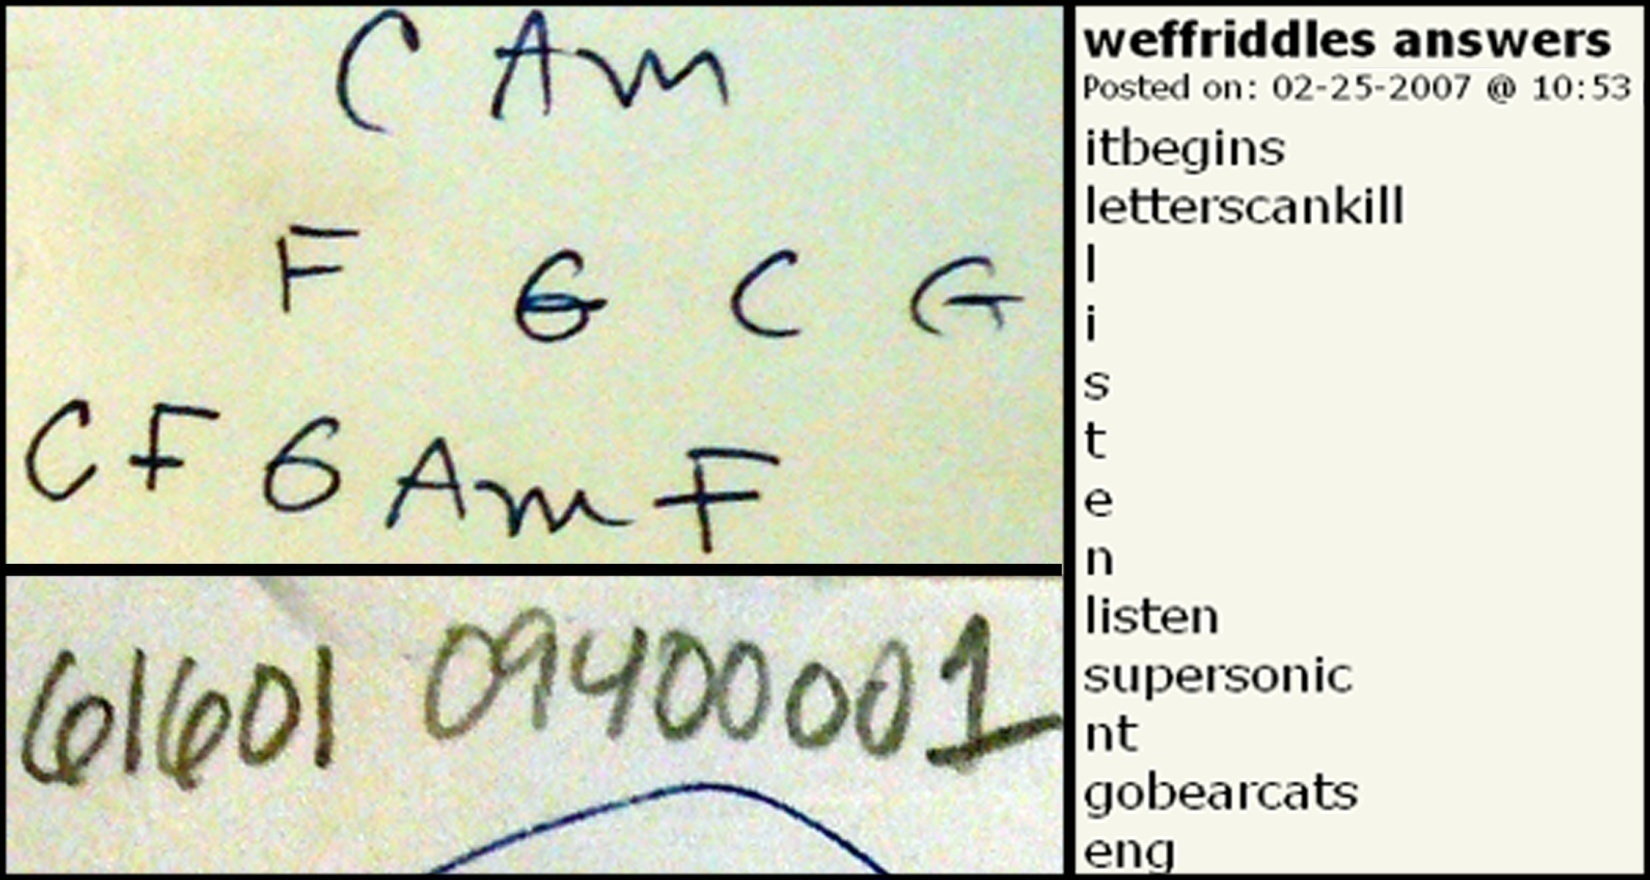 C Am
F G C G
C F G Am F
61601 09400001
weffriddles answers
Posted on: 02-25-2007 @ 10:53
itbegins
letterscankill
l
i
s
t
e
n
listen
supersonic
nt
gobearcats
eng